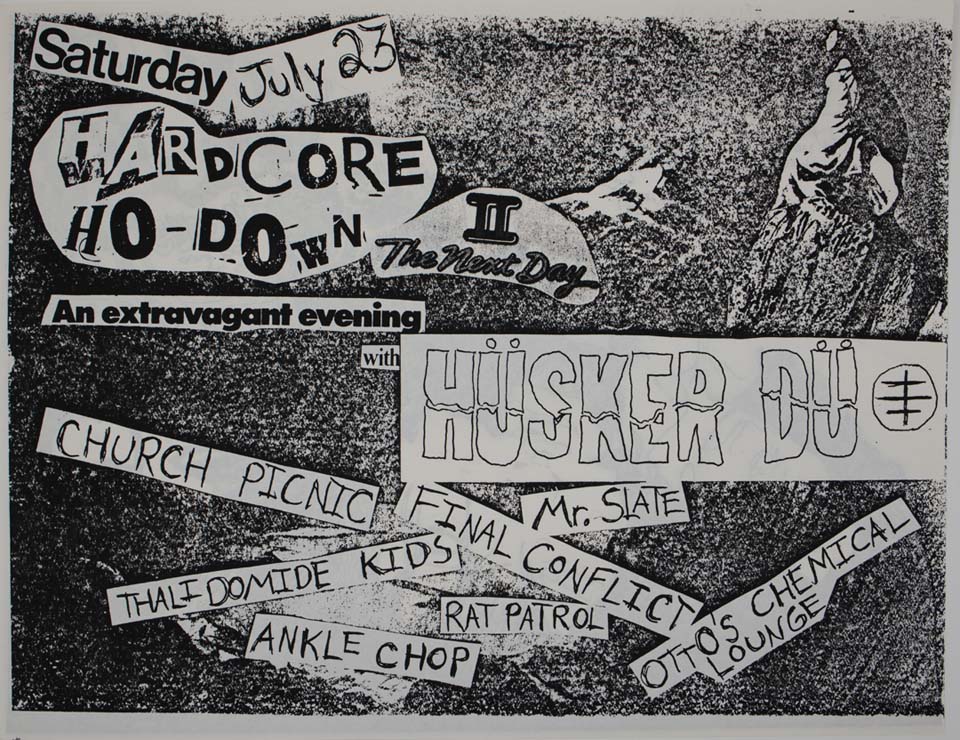 Saturday July 23
HARDCORE
HO-DOWN
II
The Next Day
An extravagant evening
with
HÜSKER DÜ
CHURCH PICNIC
FINAL CONFLICT
Mr. SLATE
THALIDOMIDE KIDS
RAT PATROL
OTTO'S CHEMICAL
LOUNGE
ANKLE CHOP